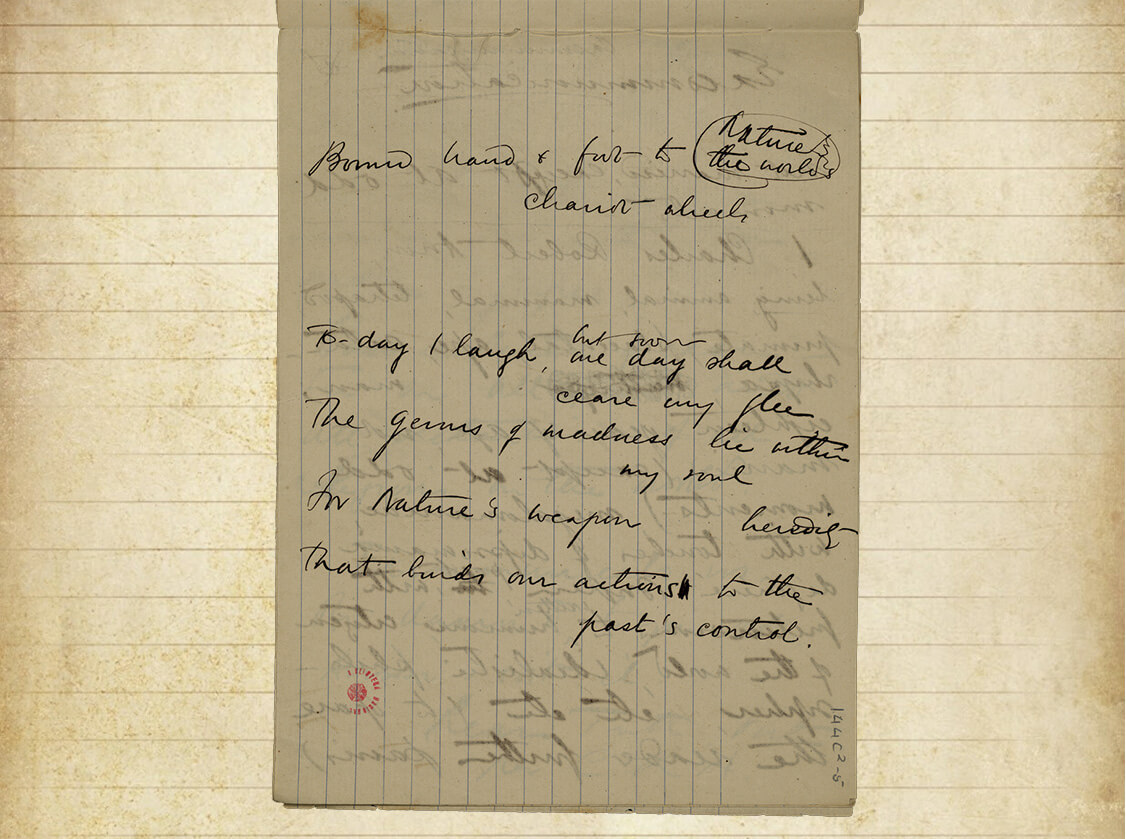 Bound hand & foot to Nature's
the world's
chariot wheels
but soon
To-day I laugh, one day shall
cease my glee
The germs of madness lie within
my soul
For Nature's weapon heredity
That binds our actions to the
past's control.
144C2-5